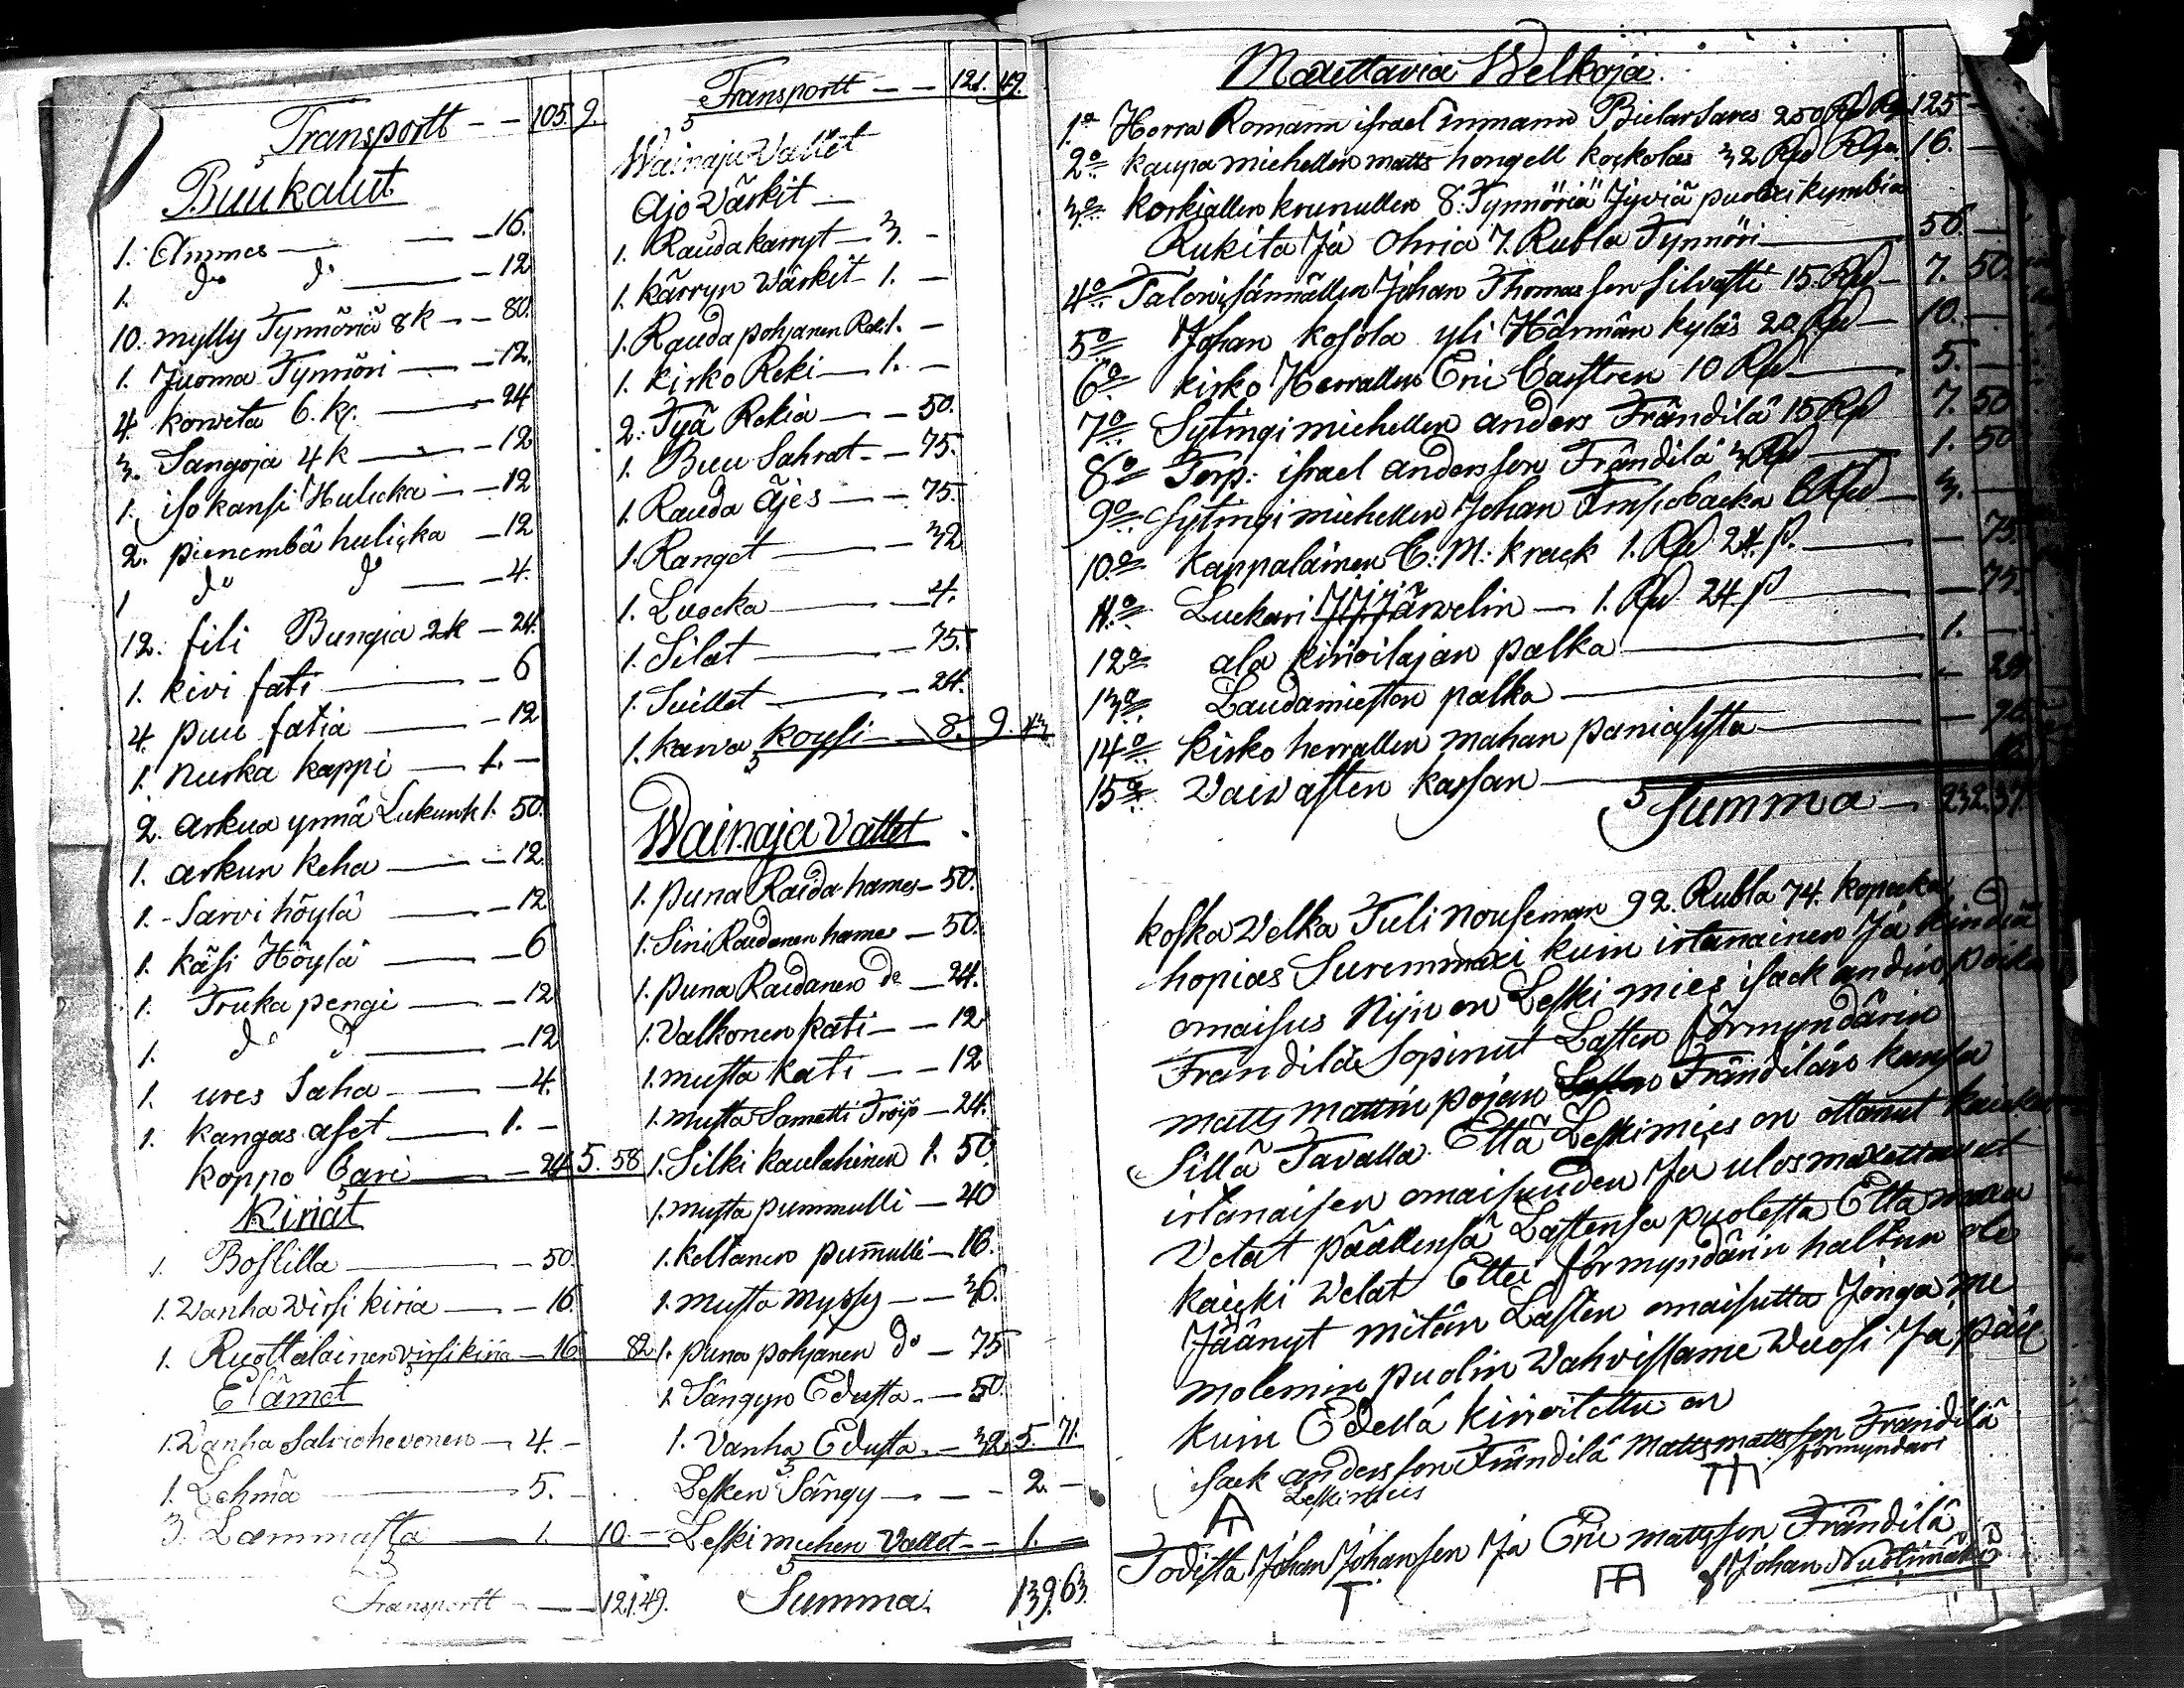 Transportt - - 105. 9.
Buukalut
1. Ammes - - 16.
1. do do - 12
10. mylly Tynnöriä 8k - - 80.
1. Juoma Tynnöri - - 12.
4. korveta 6. k. - 24
3. Sangoja 4 k - 12
1. iso kansi Hulicka - - 12
2. pienembä hulicka - 12
1 do do - 4.
12. fili Bungia 2k - 24.
1. kivi fati - 6
4. puu fatia - 12
1. Nurka kappi - 1. -
2. arkua ynnä Lukunk 1. 50.
1. arkun keha - 12.
1. Sarvi höylä - 12
1. käsi Höylä - 6
1. Truka pengi - 12
1. do do - 12
1. ures Saha - 4.
1. kangas aset - 1. -
koppo Cari - 24 5. 58
Kiriat
1. Bostilla - 50.
1. Wanha Wirsi kiria - 16.
1. Ruottalainen virsikiria - 16 82
Elämet
1. Wanha Salvichevonen - 4. -
1. Lehmä - 5. -
3. Lammasta - 1. 10. -
Transportt - - 121.49.
Transportt - - 121. 49.
Wainaju Vattet
Ajo Värkit -
1. Rauda karryt - 3. -
1. kärryn Wärkit - 1. -
1. Rauda pohjanen Reki 1. -
1. kirko Reki - 1. -
2. Työ Rekiä - - 50.
1. Buu Sahrat - - 75.
1. Rauda äjes - - 75.
1. Ranget - 32
1. Luocka - 4.
1. Silat - 75.
1. Suillet - 24.
1. karva koysi - 8. 9. 43
Wainaja Vattet
1. puna Raida hames - 50.
1. Sini Raidanen hames - 50.
1. puna Raidanen do - 24.
1. Valkonen kati - - 12
1. musta kati - - 12
1. musta Sametti Tröijö - 24.
1. Silki kaulahinen 1. 50.
1. musta pummulli - 40
1. keltanen pumulli - 18.
1. musta myssy - - 36.
1. puna pohjanen do - 75
1. Sängyn Edusta - - 50.
1. Vanha Edusta - 32 5. 71.
Lesken Sängy - - - 2. -
Leski miehen Vattet - - 1. -
Summa 139.63.
Maxettavia Welkoja
1o Herra Romann israel Inmann Bietarsares 250 Rd Rgs 125 -
2o kaupa miehellen matts hongell kockolas 32 Rd Rgs 16. -
3o korkiallen krunullen 8. Tynnöriä Jyviä puolexi kymbiä
Rukita Ja Ohria 7. Rubla Tynnöri - 56. -
4o Talonisännällen Johan Thomasson Silvasti 15. Rd - 7. 50.
5o Johan kosola yli Härmän kyläs 20. Rd - 10. -
6o kirko Herrallen Eric Castren 10 Rd - 5. -
7o Sytingi miehellen anders Frändilä 15 Rd 7. 50
8o Torp: israel andersson Frändilä 3 Rd - 1. 50
9o Sytingi miehellen Johan 6 Rd - 3. -
10o kappalainen C: M: krack 1. Rd 24. s. - 75.
11o Luckari Järvelin - 1. Rd 24. s - 75
12o ala kirioitajan palka - 1. -
13o Laudamiesten palka - 24
14o kirko herrallen mahan paniasista -
15o Vaivasten kassan -
Summa - 232.37.
koska Velka Tuli nouseman 92. Rubla 74. kopecka
hopias Suremmaxi kuin irtanainen Ja kindiä
omaisus Nijn on Leski mies isack andin poika
Frändilä Sopinut Lasten förmyndärin
matts mattin pojan Frändilän kansa
Sillä Tavalla Että Leskimies on ottanut kaicken
irtanaisen omaisuuden Ja ulosmaxettavat
Velat päällensä Lastensa puolesta Että maxa
kaicki Velat Ettei förmyndärin haltun ole
Jäänyt mitän Lasten omaisutta Jonga me
molemin puolin Vahvistame Wuosi Ja päiv
kuin Edellä kirioitettu on
isack andersson Frändilä Matts mattsson Frändilä
Leskimies förmyndäri
Todista Johan Johansson Ja Eric mattsson Frändilä
Johan Nuolimäki